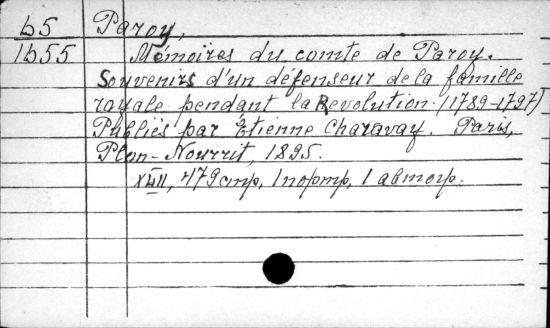 b5 Paroy,
1b55 Mémoires du comte de Paroy.
Souvenirs d'un défenseur de la famille
royale pendant la Revolution (1789-1797)
Publiés par Étienne Charavay. Paris,
Plon-Nourrit, 1895.
479 стр, 1 портр, 1 автогр.